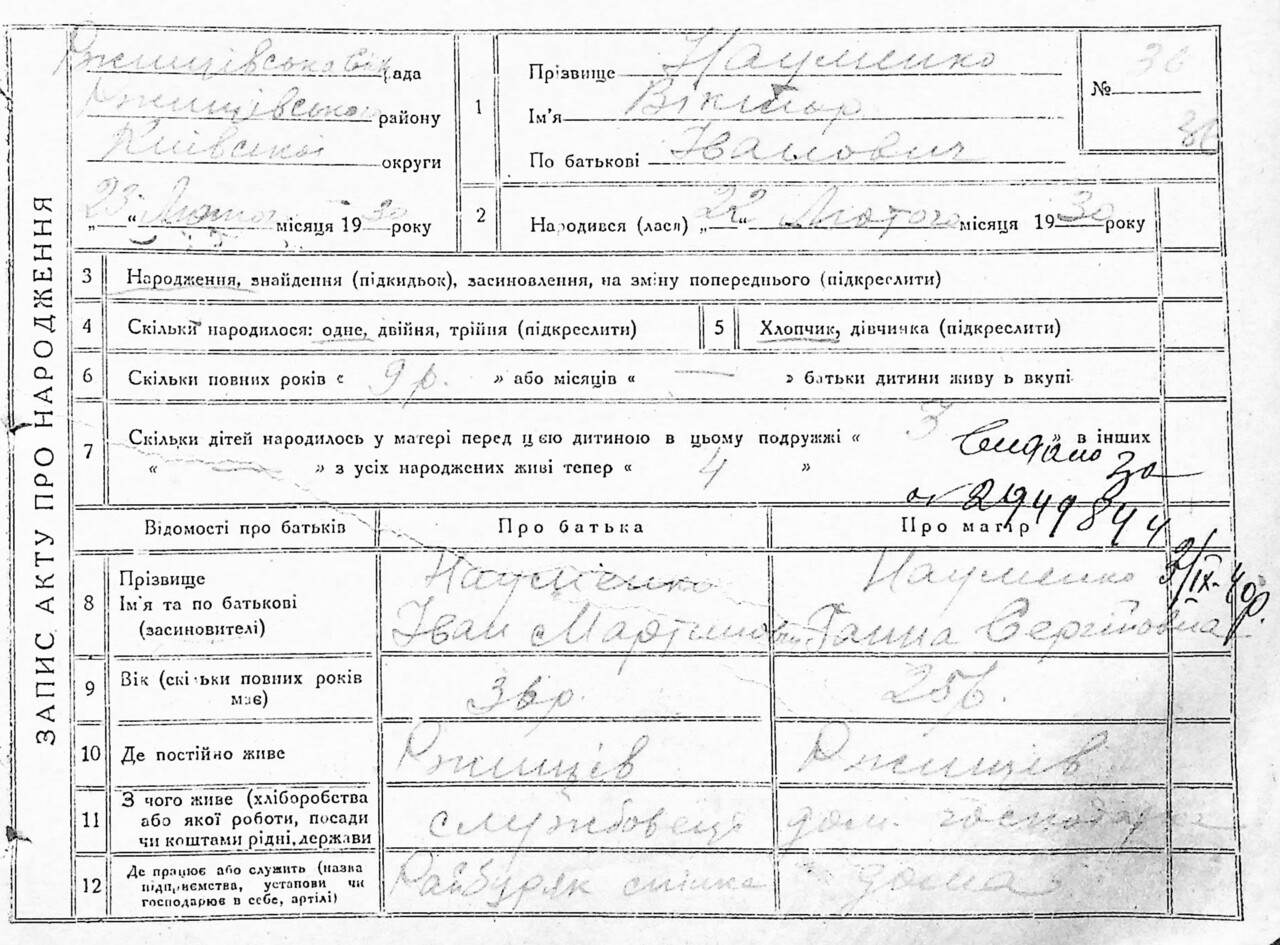 ЗАПИС АКТУ ПРО НАРОДЖЕННЯ
Ржищівсько рада
Ржищівського району
Київської округи
„23“ Лютого місяця 1930 року
1
Прізвище Науменко
Ім'я Віктор
По батькові Іванович
№ 36
36
2
Народився (лася) „22“ Лютого місяця 1930 року
3 Народження, знайдення (підкидьок), засиновлення, на зміну попереднього (підкреслити)
4 Скільки народилося: одне, двійня, трійня (підкреслити)
5 Хлопчик, дівчинка (підкреслити)
6 Скільки повних років « 9 р. » або місяців « — » батьки дитини живу ь вкупі
7 Скільки дітей народилось у матері перед цією дитиною в цьому подружжі « 3 » в інших
« — » з усіх народжених живі тепер « 4 »
Видано за
2949844
9/IX-40р.
Відомості про батьків Про батька Про матір
8 Прізвище
Ім'я та по батькові
(засиновителі)
Науменко
Іван Мартинович
Науменко
Ганна Сергіївна
9 Вік (скільки повних років
має)
36р. 25р.
10 Де постійно живе Ржищів Ржищев
11 З чого живе (хліборобства
або якої роботи, посади
чи коштами рідні, держави
службовець дом. господарка
12 Де працює або служить (назва
підприємства, установи чи
господарює в себе, артілі)
Райбуряк спілка дома